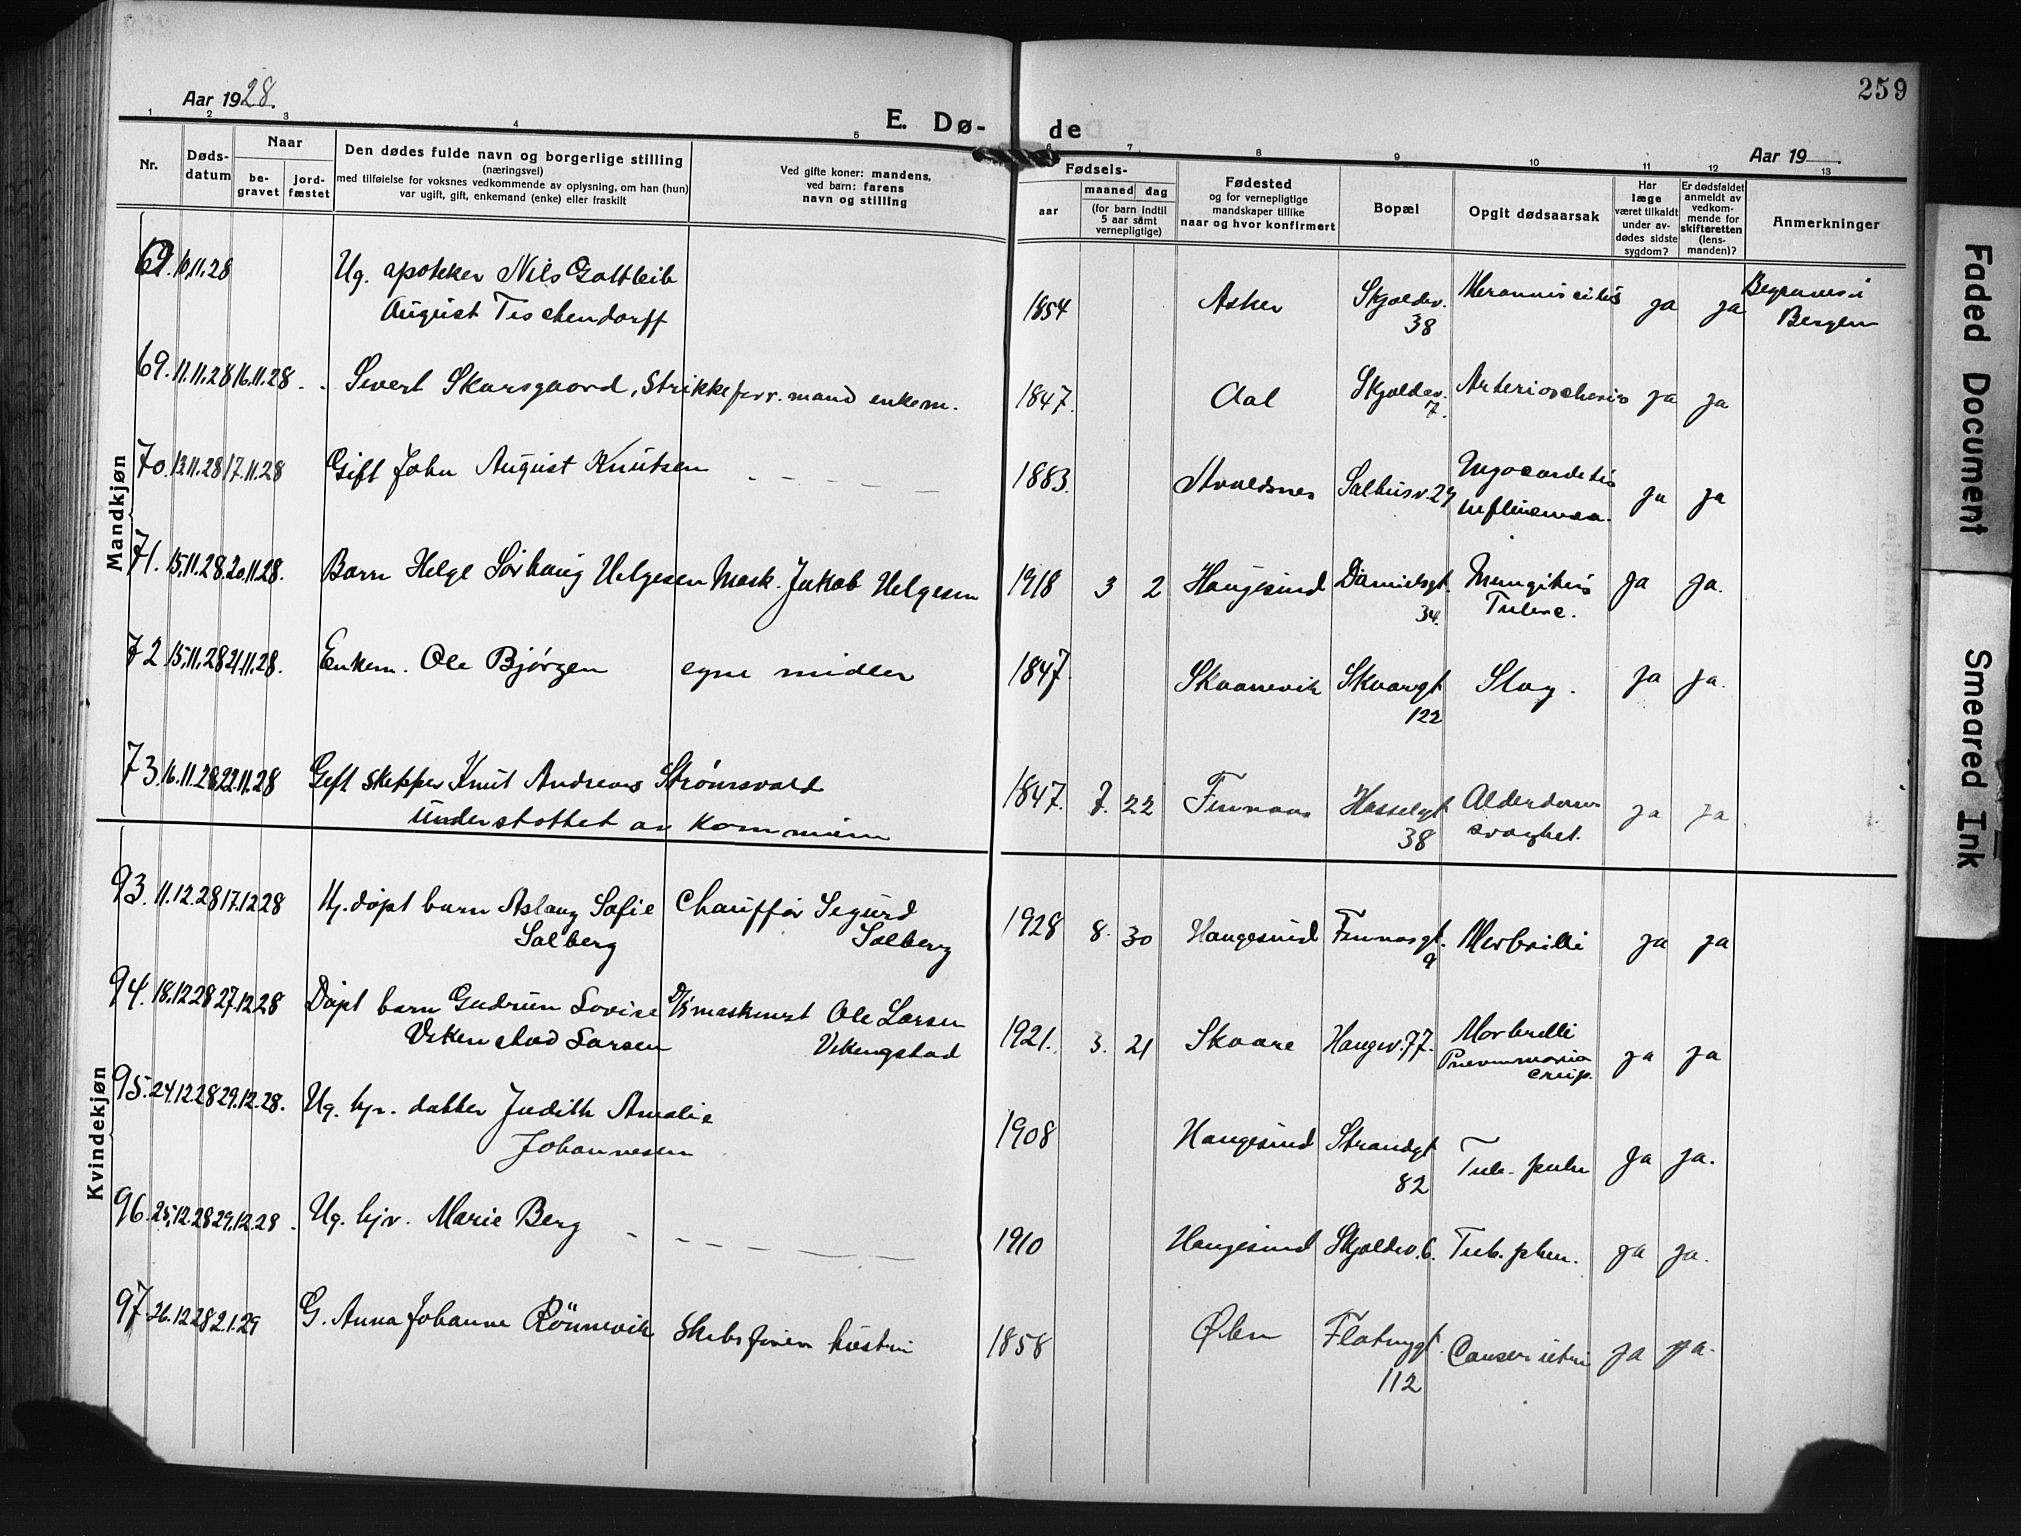 259
Aar 1928.
E. Dø- de
Aar 19
1 2 3 4 5 6 7 8 9 10 11 12 13
Nr.
Døds-
datum
Naar
be-
gravet
jord-
fæstet
Den dødes fulde navn og borgerlige stilling
(næringsvei)
med tilføielse for voksnes vedkommende av oplysning, om han (hun)
var ugift, gift, enkemand (enke) eller fraskilt
Ved gifte koner: mandens,
ved barn: farens
navn og stilling
Fødsels-
aar
maaned dag
(for barn indtil
5 aar samt
vernepligtige)
Fødested
og for vernepligtige
mandskaper tillike
naar og hvor konfirmert
Bopæl
Opgit dødsaarsak
Har
læge
været tilkaldt
under av-
dødes sidste
sygdom?
Er dødsfaldet
anmeldt av
vedkom-
mende for
skifteretten
(lens-
manden)?
Anmerkninger
Mandkjøn
11.28 Ug. apotheker Nils Gottleib 1854 Asker Skjoldev. ja ja Begraves i
August Tischendorff 38 Bergen
69. 11.11.28 16.11.28 Sivert Skarsgaard, Strikkeforr. mand enkem. 1847. Aal Skjoldev. ja ja
7.
70. 13.11.28 17.11.28 Gift John August Knutsen 1883. Avaldsnes Salhusv. Myocarditis ja ja
Influensa.
71. 15.11.28. 20.11.28. Barn Helge Sørhaug Helgesen Mask. Jakob Helgesen 1918 3 2 Haugesund Danielsgt. ja ja.
34. Tuberc.
72. 15.11.28 21.11.28. Enkem. Ole Bjørgen egne midler 1847. Skaanevik Skaaregt. Slag. ja ja.
122
73. 16.11.28 22.11.28 Gift skipper Knut Andreas Strømsvold 1847. 7. 22 Finnaas Hasselgt. Alderdoms ja ja.
understøttet av kommunen 38 svaghet.
Kvindekjøn
93. 11.12.28 17.12.28 Hj. døpt barn Aslaug Sofie Chauffør Sigurd 1928 8. 30 Haugesund Finnaasgt. Morbilli ja ja
Solberg Solberg 9
94. 18.12.28 27.12.28 Døpt barn Gudrun Lovise D/S maskinist Ole Larsen 1921. 3. 21 Skaare Haugev. 77. Morbilli ja ja
Vikenstad Larsen Vikingstad Pneumonia
crup.
95. 24.12.28 29.12.28. Ug. hjv. datter Judith Amalie 1908 Haugesund Strandgt. Tub. pulm ja ja.
Johannesen 82
96. 25.12.28 29.12.28. Ug. hjv. Marie Berg 1910 Haugesund Skjoldev. 6. Tub. ja ja.
97. 26.12.28 2.1.29 G. Anna Johanne Rönnevik Skibsfører hustru 1858 Ølen Flotmyrgt. ja ja.
112
Faded Document
Smeared Ink